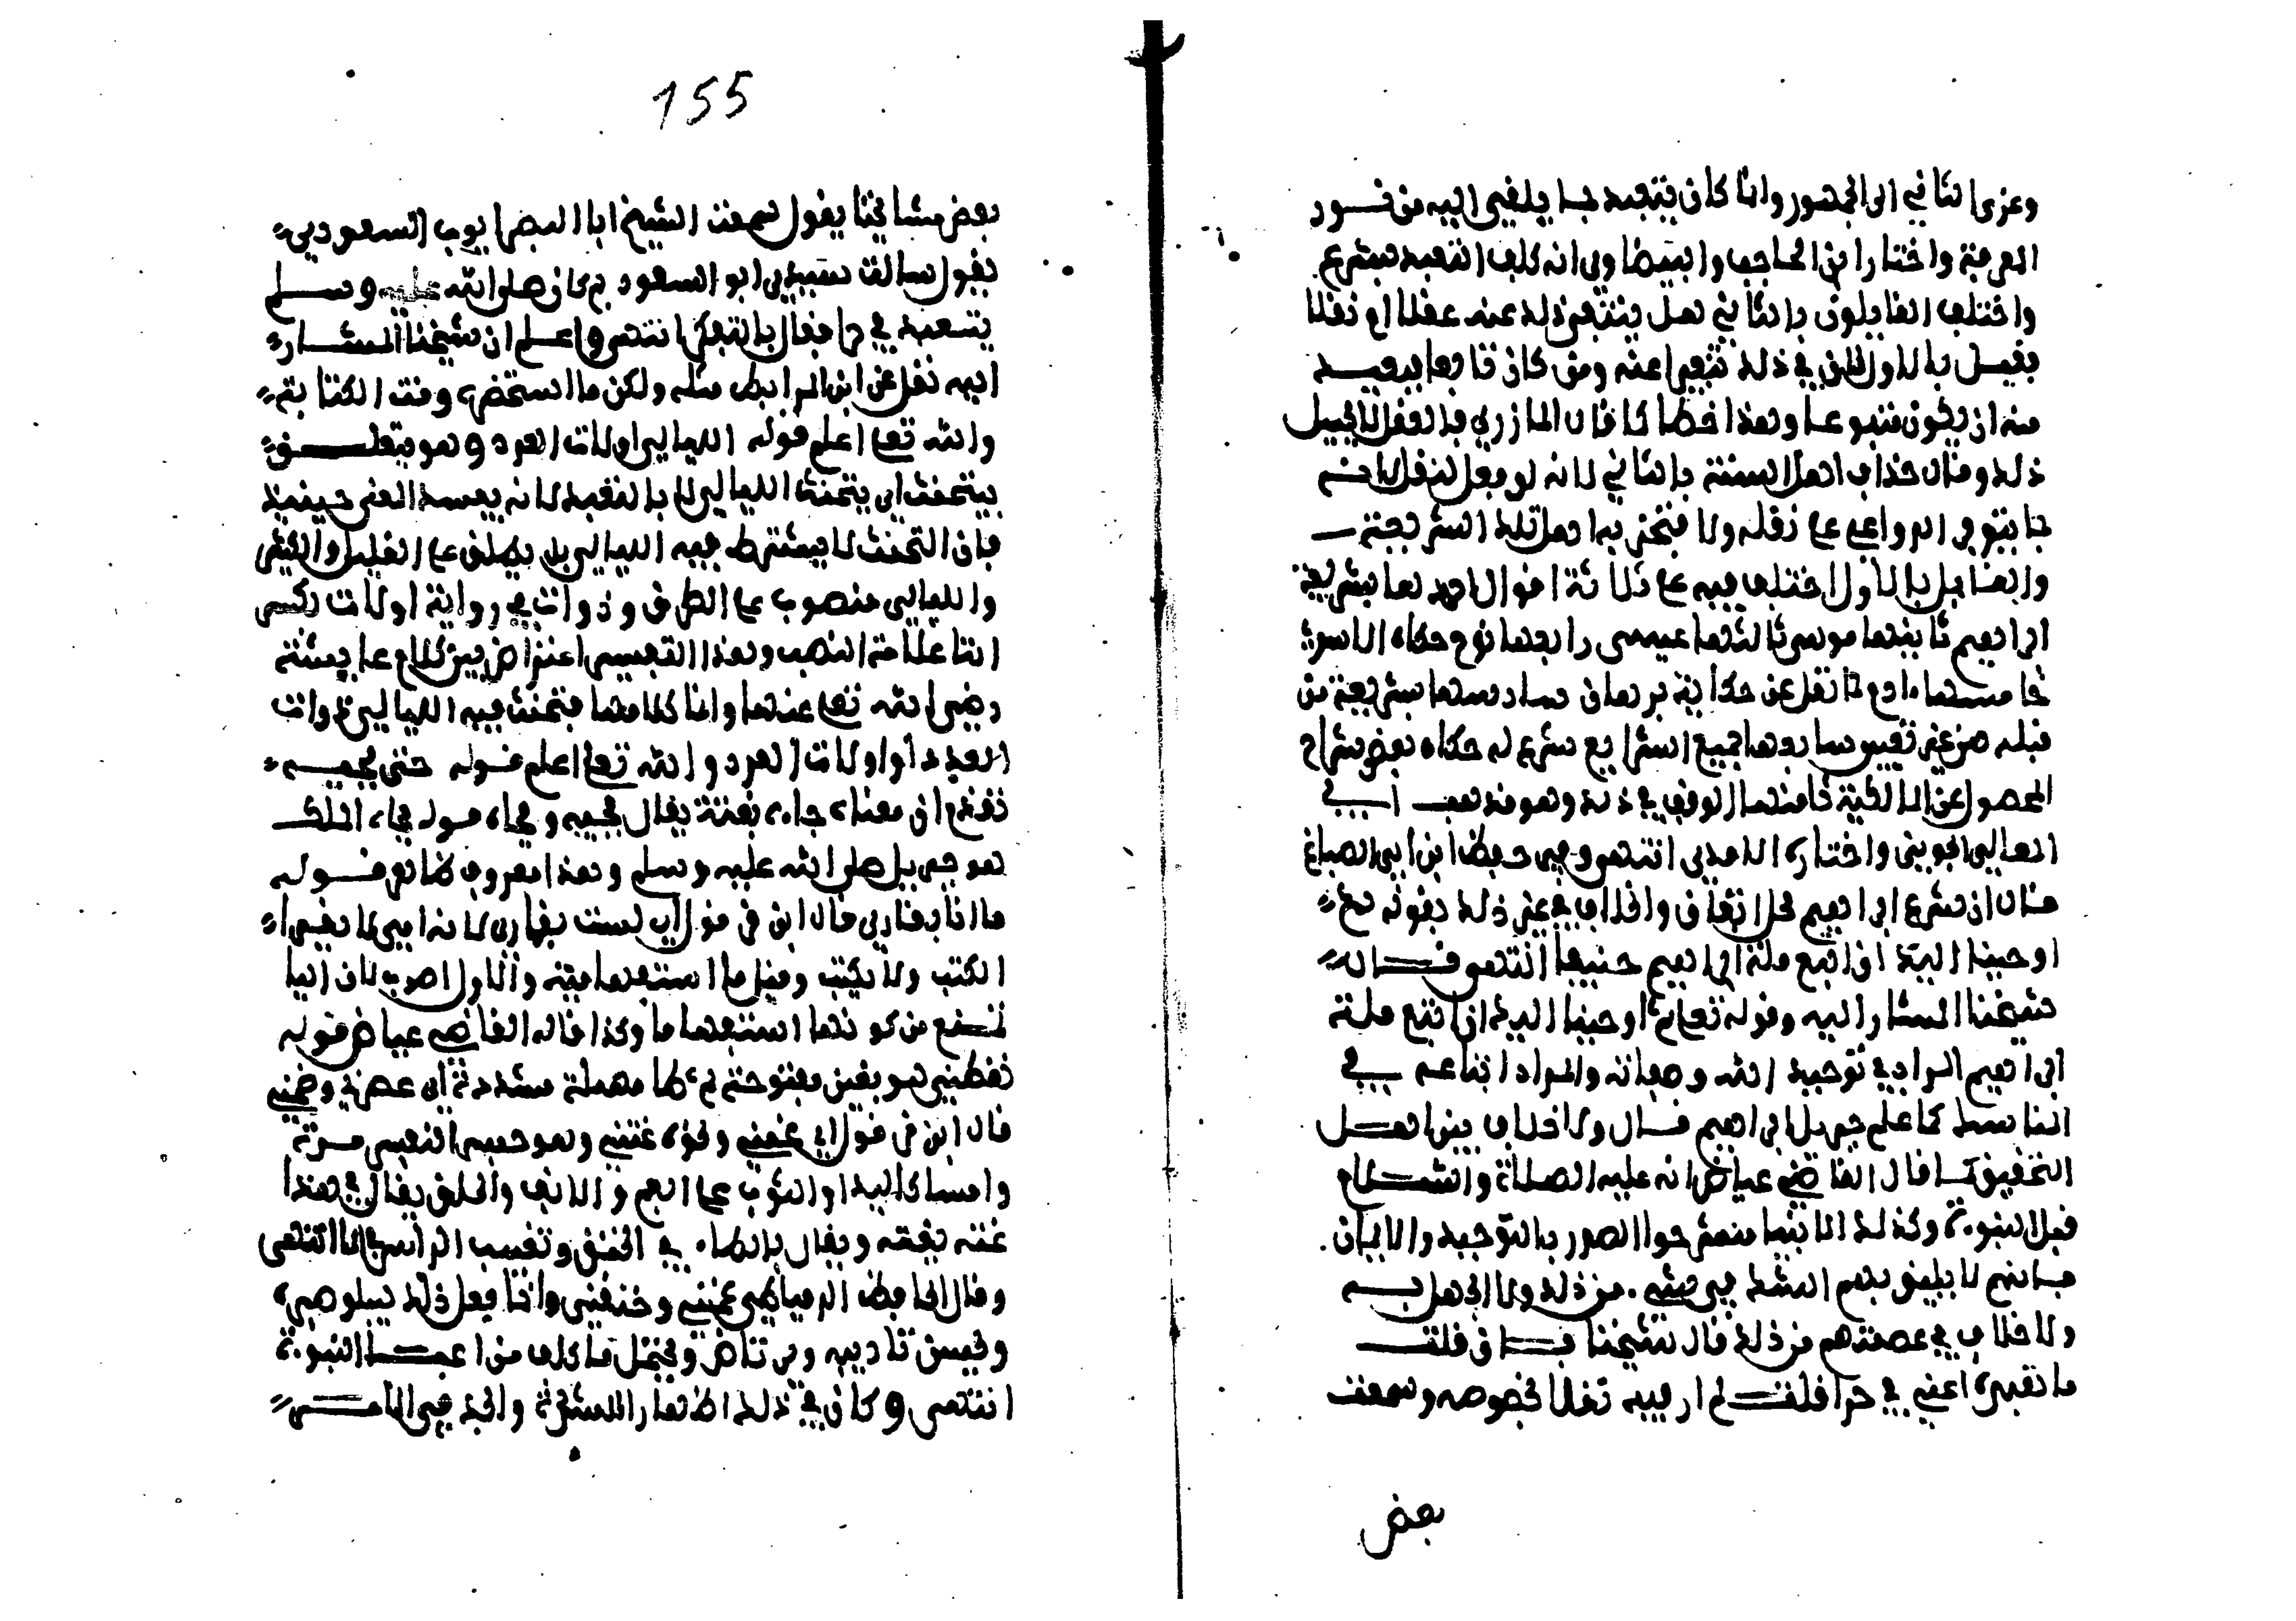 وعزي الثاني الى الجمهور وانما كان يتعبد بما يلقى اليه من نور
المعرفة واختار ابن الحاجب والبيضاوي انه كلف التعبد بشرع
واختلف القايلون بالثاني هل ينتفي ذلك عنه عقلا او نقلا
فقيل بالاول لان في ذلك تنفيرا عنه ومن كان تابعا يبعد
منه ان يكون متبوعا وهذا خطا كما قال المازري فالعقل لا يحيل
ذلك وقال حذاق اهل السنة بالثاني لانه لو فعل لنقل لانه
مما تتوفر الدواعي على نقله ولافتخر به اهل تلك الشريعة
والقايل بالاول اختلف فيه على ثمانية اقوال احدها بشريعة
ابراهيم ثانيها موسى ثالثها عيسى رابعها نوح حكاه الامدي
خامسها ادم كما نقل عن حكاية برهان سادسها بشريعة من
قبله من غير تعيين سابعها جميع الشرايع شرع له حكاه بعض شراح
المحصول عن المالكية ثامنها الوقف في ذلك وهو مذهب ابي
المعالي الجويني واختاره الامدي انتهى وفي حفظ ابن ابي الصباغ
قال ان شرع ابراهيم محل اتفاق والخلاف في غير ذلك بقوله ثم
اوحينا اليك ان اتبع ملة ابراهيم حنيفا انتهى قال
شيخنا المشار اليه وقوله تعالى ثم اوحينا اليك ان اتبع ملة
ابراهيم المراد في توحيد الله وصفاته والمراد اتباعه في
المناسك كما علم جبريل ابراهيم قال ولا خلاف بين اهل
التحقيق كما قال القاضي عياض انه عليه الصلاة والسلام
قبل النبوة وكذلك الانبيا منشرحوا الصدر بالتوحيد والايمان
فانهم لا يليق بهم الشك في شيء من ذلك ولا الجهل به
ولا خلاف في عصمتهم من ذلك قال شيخنا فان قلت
ما تعبده اعني في حرا قلت لم ار فيه نقلا بخصوصه وسمعت
بعض
155
بعض مشايخنا يقول سمعت الشيخ ابا البصر ايوب السعودي
يقول سالت سيدي ابو السعود بم كان صلى الله عليه وسلم
يتعبد في حرا فقال بالتفكر انتهى واعلم ان شيخنا المشار
اليه نقل عن ابن المرابط مثله ولكن ما استحضره وقت الكتابة
والله تعالى اعلم قوله الليالي اولات العدد وهو متعلق
بيتحنث اي يتحنث الليالي لا بالتعبد لانه يفسد المعنى حينئذ
فان التحنث لا يشترط فيه الليالي بل يطلق على القليل والكثير
والليالي منصوب على الظرف وذوات في رواية اولات بكسر
التا علامة النصب وهذا التفسير اعتراض بين كلام عايشة
رضي الله تعالى عنها وانما كلامها فيتحنث فيه الليالي ذوات
العدد او اولات العدد والله تعالى اعلم قوله حتى فجيه
تقدم ان معناه جاءه بغتة يقال فجيه وفجاه قوله فجاه الملك
هو جبريل صلى الله عليه وسلم وهذا معروف ظاهر قوله
ما انا بقاري قال ابن قرقول اي لست بقاري لانه امي لا يقرا
الكتب ولا يكتب وقيل ما استفهامية والاول اصوب لان البا
تمنع من كونها استفهاما وكذا قاله القاضي عياض قوله
فغطني هو بغين مفتوحة ثم طا مهملة مشددة اي عصرني وضمني
قال ابن قرقول اي غمني ونحوه غتني وهو حبس النفس مرة
وامساك اليد او الثوب على الفم والانف والحلق يقال في هذا
غته يغته ويقال بالطاء في الخنق وتغييب الراس في الما انتهى
وقال الحافظ الدمياطي غمني وخنقني وانما فعل ذلك ليبلو صبره
ويحسن تاديبه ويرتاض ويحتمل ما كلف من اعباء النبوة
انتهى وكان في ذلك اظهار الشدة والجد في الامر